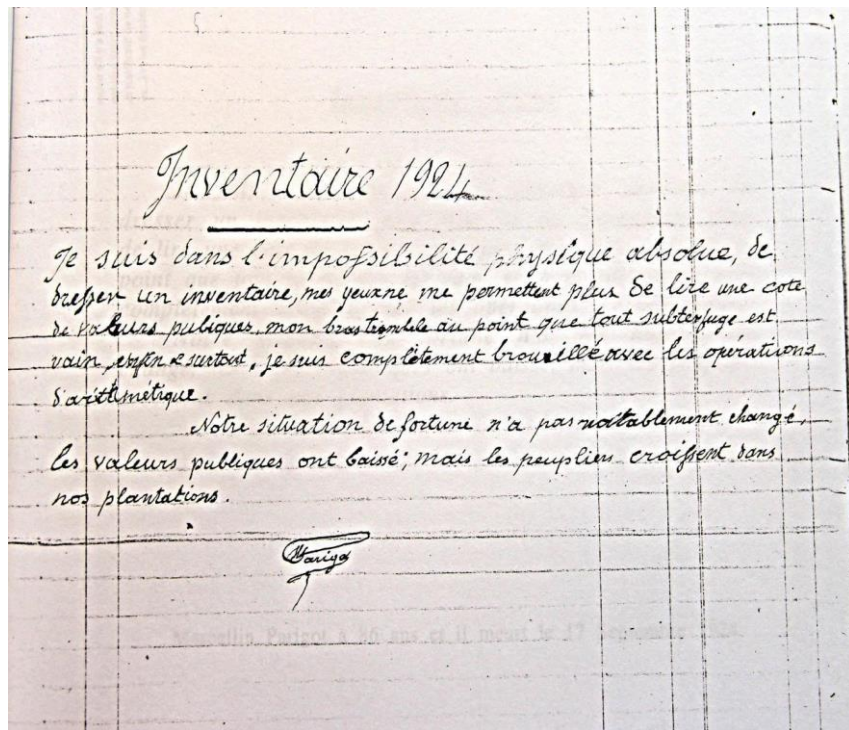 Inventaire 1924
Je suis dans l'impossibilité physique absolue, de
dresser un inventaire, mes yeux ne me permettent plus de lire une cote
de valeurs publiques, mon bras tremble au point que tout subterfuge est
vain, enfin & surtout, je suis complètement brouillé avec les opérations
d'arithmétique.
Notre situation de fortune n'a pas notablement changé,
les valeurs publiques ont baissé; mais les peupliers croissent dans
nos plantations.